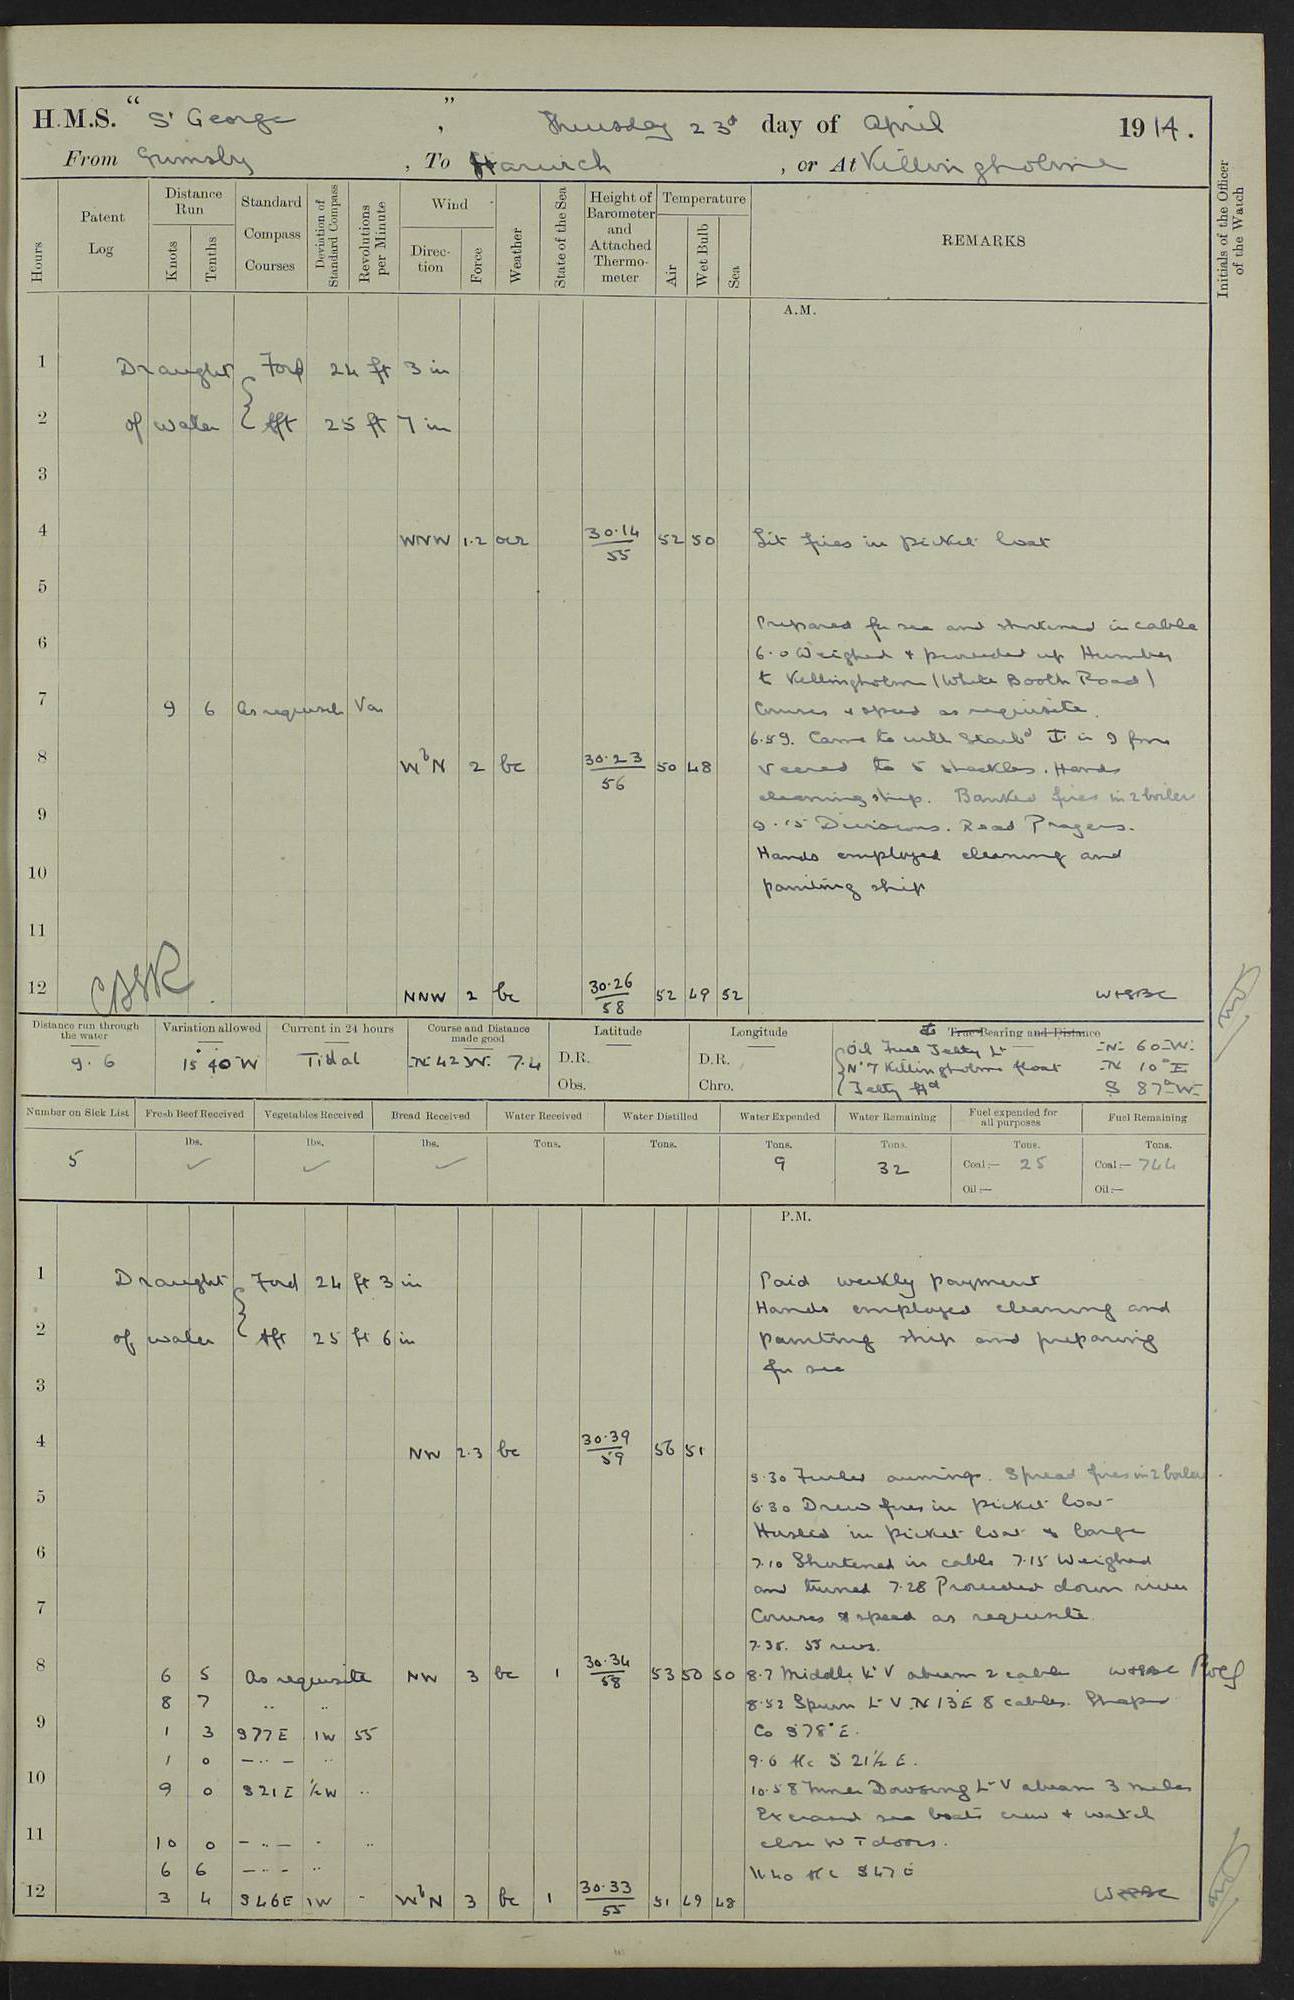 H.M.S. "St George", Thursday 23d day of April 1914.
From Grimsby, To Harwich, or At Killingholme
Hours
Patent Log
Distance Run
Knots
Tenths
Standard Compass Courses
Deviation of Standard Compass
Revolutions per Minute
Wind
Direction
Force
Weather
State of the Sea
Height of Barometer and Attached Thermometer
Temperature
Air
Wet Bulb
Sea
REMARKS
Initials of the Officer of the Watch
A.M.
1 Draught Ford 24 ft 3 in
2 of water Aft 25 ft 7 in
3
4 WNW 1.2 30.14 55 52 50 Lit fires in picket boat
5
Prepared for sea and shortened in cable
6 6.0 Weighed & proceeded up Humber
to Killingholme (White Booth Road)
7 9 6 As requisite Var Courses & speed as requisite.
6.59. Came to with Starbd in 9 fms
8 WbN 2 bc 30.23 56 50 48 veered to 5 shackles. Hands
cleaning ship. Banked fires in 2 boilers
9 9.15 Divisions. Read Prayers.
Hands employed cleaning and
10 painting ship
11
12 NNW 2 bc 30.26 58 52 49 52
Distance run through the water
9.6
Variation allowed
15°40'W
Current in 24 hours
Tidal
Course and Distance made good
N 42 W. 7.4
Latitude
D.R.
Obs.
Longitude
D.R.
Chro.
True Bearing and Distance
Oil Fuel Jetty Lt N 60 W
No 7 Killingholme float N 10° E
Jetty Hd S 87° W
Number on Sick List
5
Fresh Beef Received
lbs.
✓
Vegetables Received
lbs.
✓
Bread Received
lbs.
✓
Water Received
Tons.
Water Distilled
Tons.
Water Expended
Tons.
9
Water Remaining
Tons.
32
Fuel expended for all purposes
Tons.
Coal:— 25
Oil:—
Fuel Remaining
Tons.
Coal:— 744
Oil:—
P.M.
1 Draught Ford 24 ft 3 in Paid weekly payment
Hands employed cleaning and
2 of water Aft 25 ft 6 in painting ship and preparing
for sea
3
4 NW 2.3 bc 30.39 59 56 51
5.30 Furled awnings. Spread fires in 2 boilers.
5 6.30 Drew fires in picket boat
Hoisted in picket boat & barge
6 7.10 Shortened in cable 7.15 Weighed
and turned 7.28 Proceeded down river
7 Courses & speed as requisite.
7.35. 55 revs.
8 6 5 As requisite NW 3 bc 1 30.34 58 53 50 50 8.7 Middle Lt V abeam 2 cables
8 7 .. .. 8.52 Spurn Lt V N 13 E 8 cables. Shaped
9 1 3 S77E 1W 55 Co S 78° E.
1 0 — .. — .. 9.6 A/c S 21½ E.
10 9 0 S21E ½W .. 10.58 Inner Dowsing Lt V abeam 3 miles
Exercised sea boats crew & watch
11 10 0 — .. — .. .. close W T doors.
6 6 — .. — .. 11.40 A/c S 47 E
12 3 4 S46E 1W .. WbN 3 bc 1 30.33 55 51 49 48